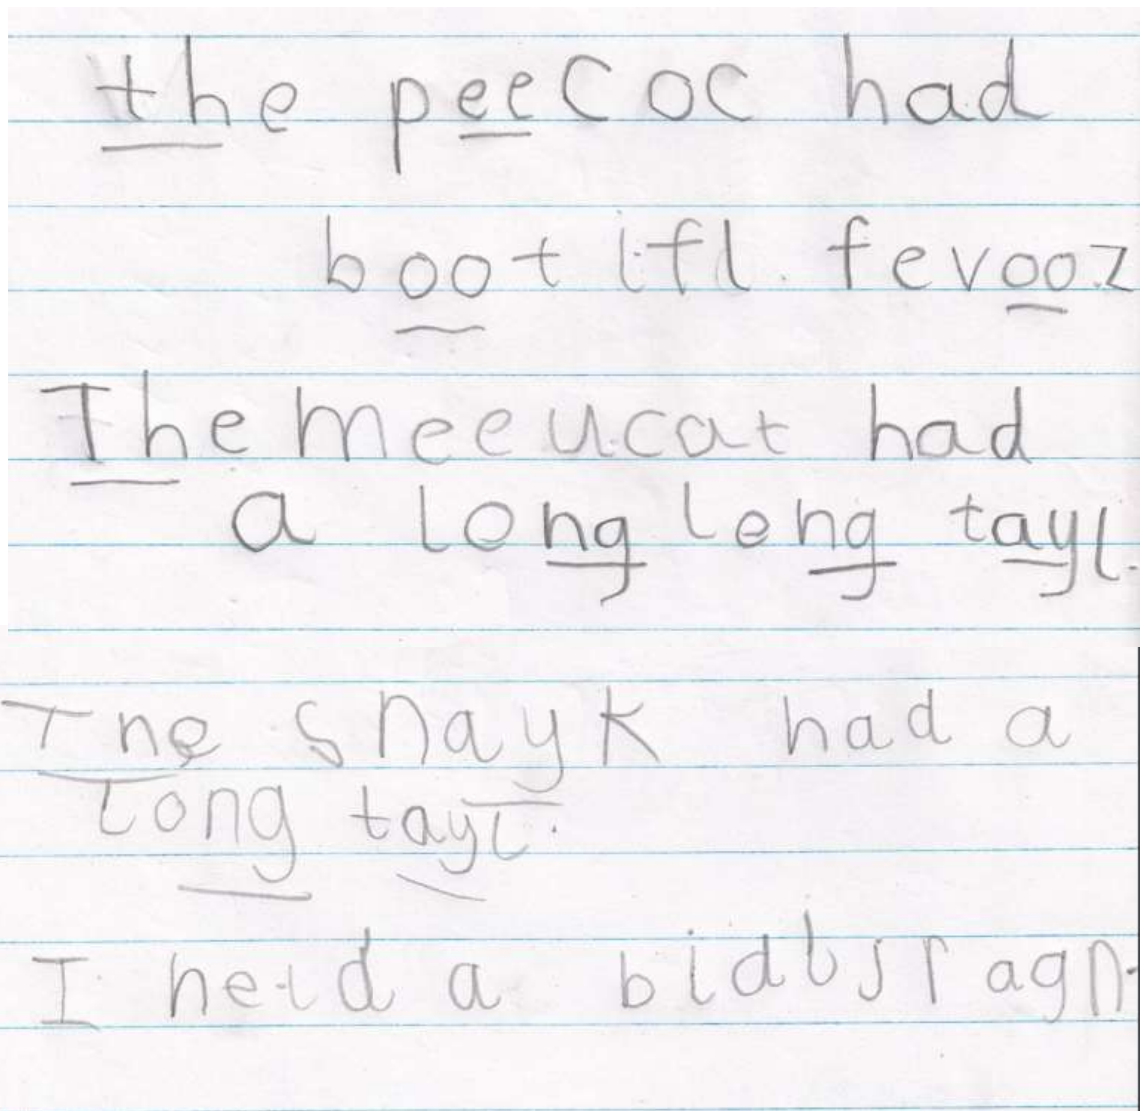 the peecoc had
bootifl. fevooz
The meeucat had
a long leng tayl.
The snayk had a
long tayl.
I held a bidbsragn.